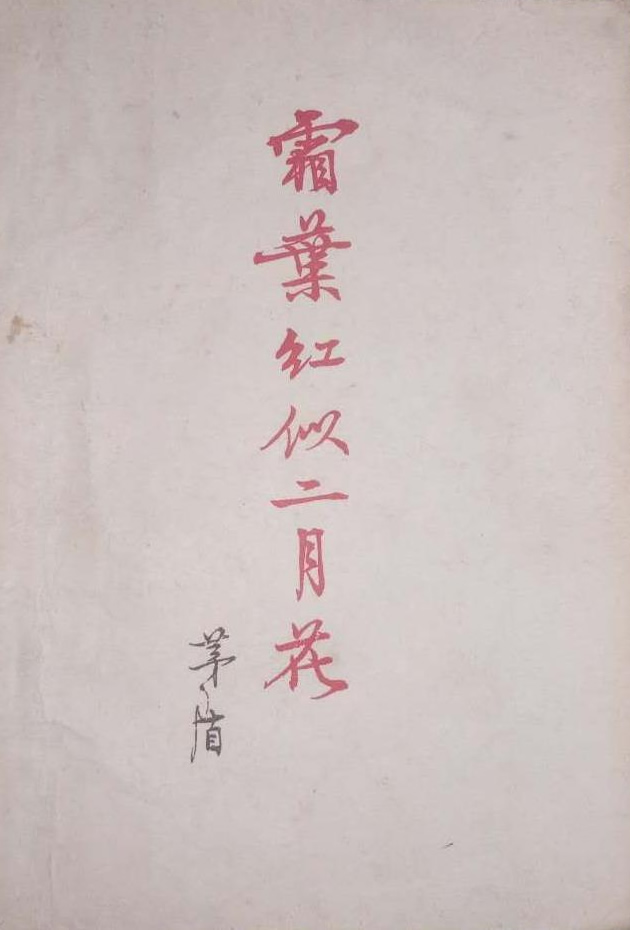 霜葉红似二月花
茅盾